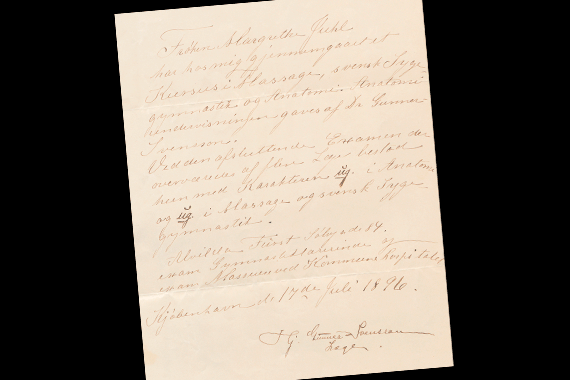 Frøken Margrethe Juhl
har hos mig gjennemgaaet et
Kursus i Massage, svensk Syge
gymnastik og Anatomi. Anatomi-
undervisningen gaves af Dr Gunnar
Svensson.
Ved den afsluttende Examen der
overværedes af flere Læger bestod
hun med Karakteren ug. i Anatomi
og ug. i Massage og svensk Syge
gymnastik.
Alvilda Fürst Søbyade 14.
exam Gymnastiklærerinde og
exam Masseuse ved Kommunehospitalet
Kjøbenhavn de 17de Juli 1896.
G. Gunnar Svensson
Læge.